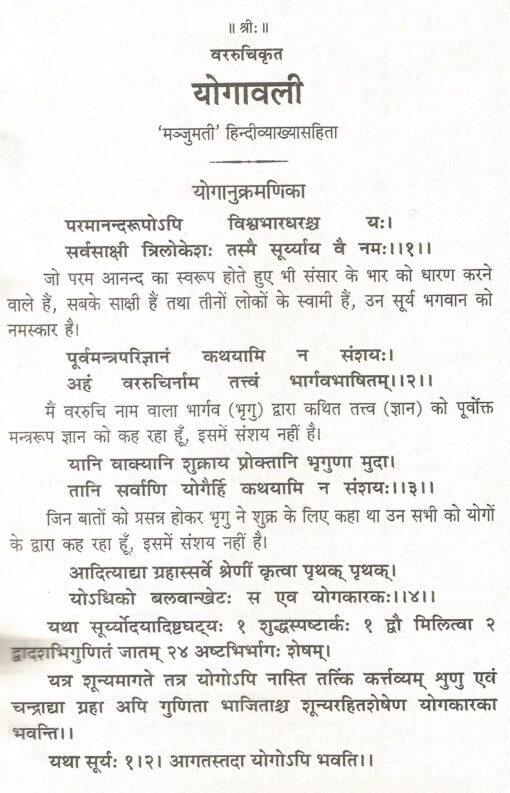 ॥ श्रीः ॥
वररुचिकृत
योगावली
'मञ्जुमती' हिन्दीव्याख्यासहिता
योगानुक्रमणिका
परमानन्दरूपोऽपि विश्वभारधरश्च यः।
सर्वसाक्षी त्रिलोकेशः तस्मै सूर्य्याय वै नमः।।१।।
जो परम आनन्द का स्वरूप होते हुए भी संसार के भार को धारण करने
वाले हैं, सबके साक्षी हैं तथा तीनों लोकों के स्वामी हैं, उन सूर्य भगवान को
नमस्कार है।
पूर्वमन्त्रपरिज्ञानं कथयामि न संशयः।
अहं वररुचिर्नाम तत्त्वं भार्गवभाषितम्।।२।।
मैं वररुचि नाम वाला भार्गव (भृगु) द्वारा कथित तत्त्व (ज्ञान) को पूर्वोक्त
मन्त्ररूप ज्ञान को कह रहा हूँ, इसमें संशय नहीं है।
यानि वाक्यानि शुक्राय प्रोक्तानि भृगुणा मुदा।
तानि सर्वाणि योगैर्हि कथयामि न संशयः।।३।।
जिन बातों को प्रसन्न होकर भृगु ने शुक्र के लिए कहा था उन सभी को योगों
के द्वारा कह रहा हूँ, इसमें संशय नहीं है।
आदित्याद्या ग्रहास्सर्वे श्रेणीं कृत्वा पृथक् पृथक्।
योऽधिको बलवान्खेटः स एव योगकारकः।।४।।
यथा सूर्य्योदयादिष्टघट्यः १ शुद्धस्पष्टार्कः १ द्वौ मिलित्वा २
द्वादशभिगुणितं जातम् २४ अष्टभिर्भागः शेषम्।
यत्र शून्यमागते तत्र योगोऽपि नास्ति तत्किं कर्त्तव्यम् श्रुणु एवं
चन्द्राद्या ग्रहा अपि गुणिता भाजिताश्च शून्यरहितशेषेण योगकारका
भवन्ति।।
यथा सूर्यः १।२। आगतस्तदा योगोऽपि भवति।।